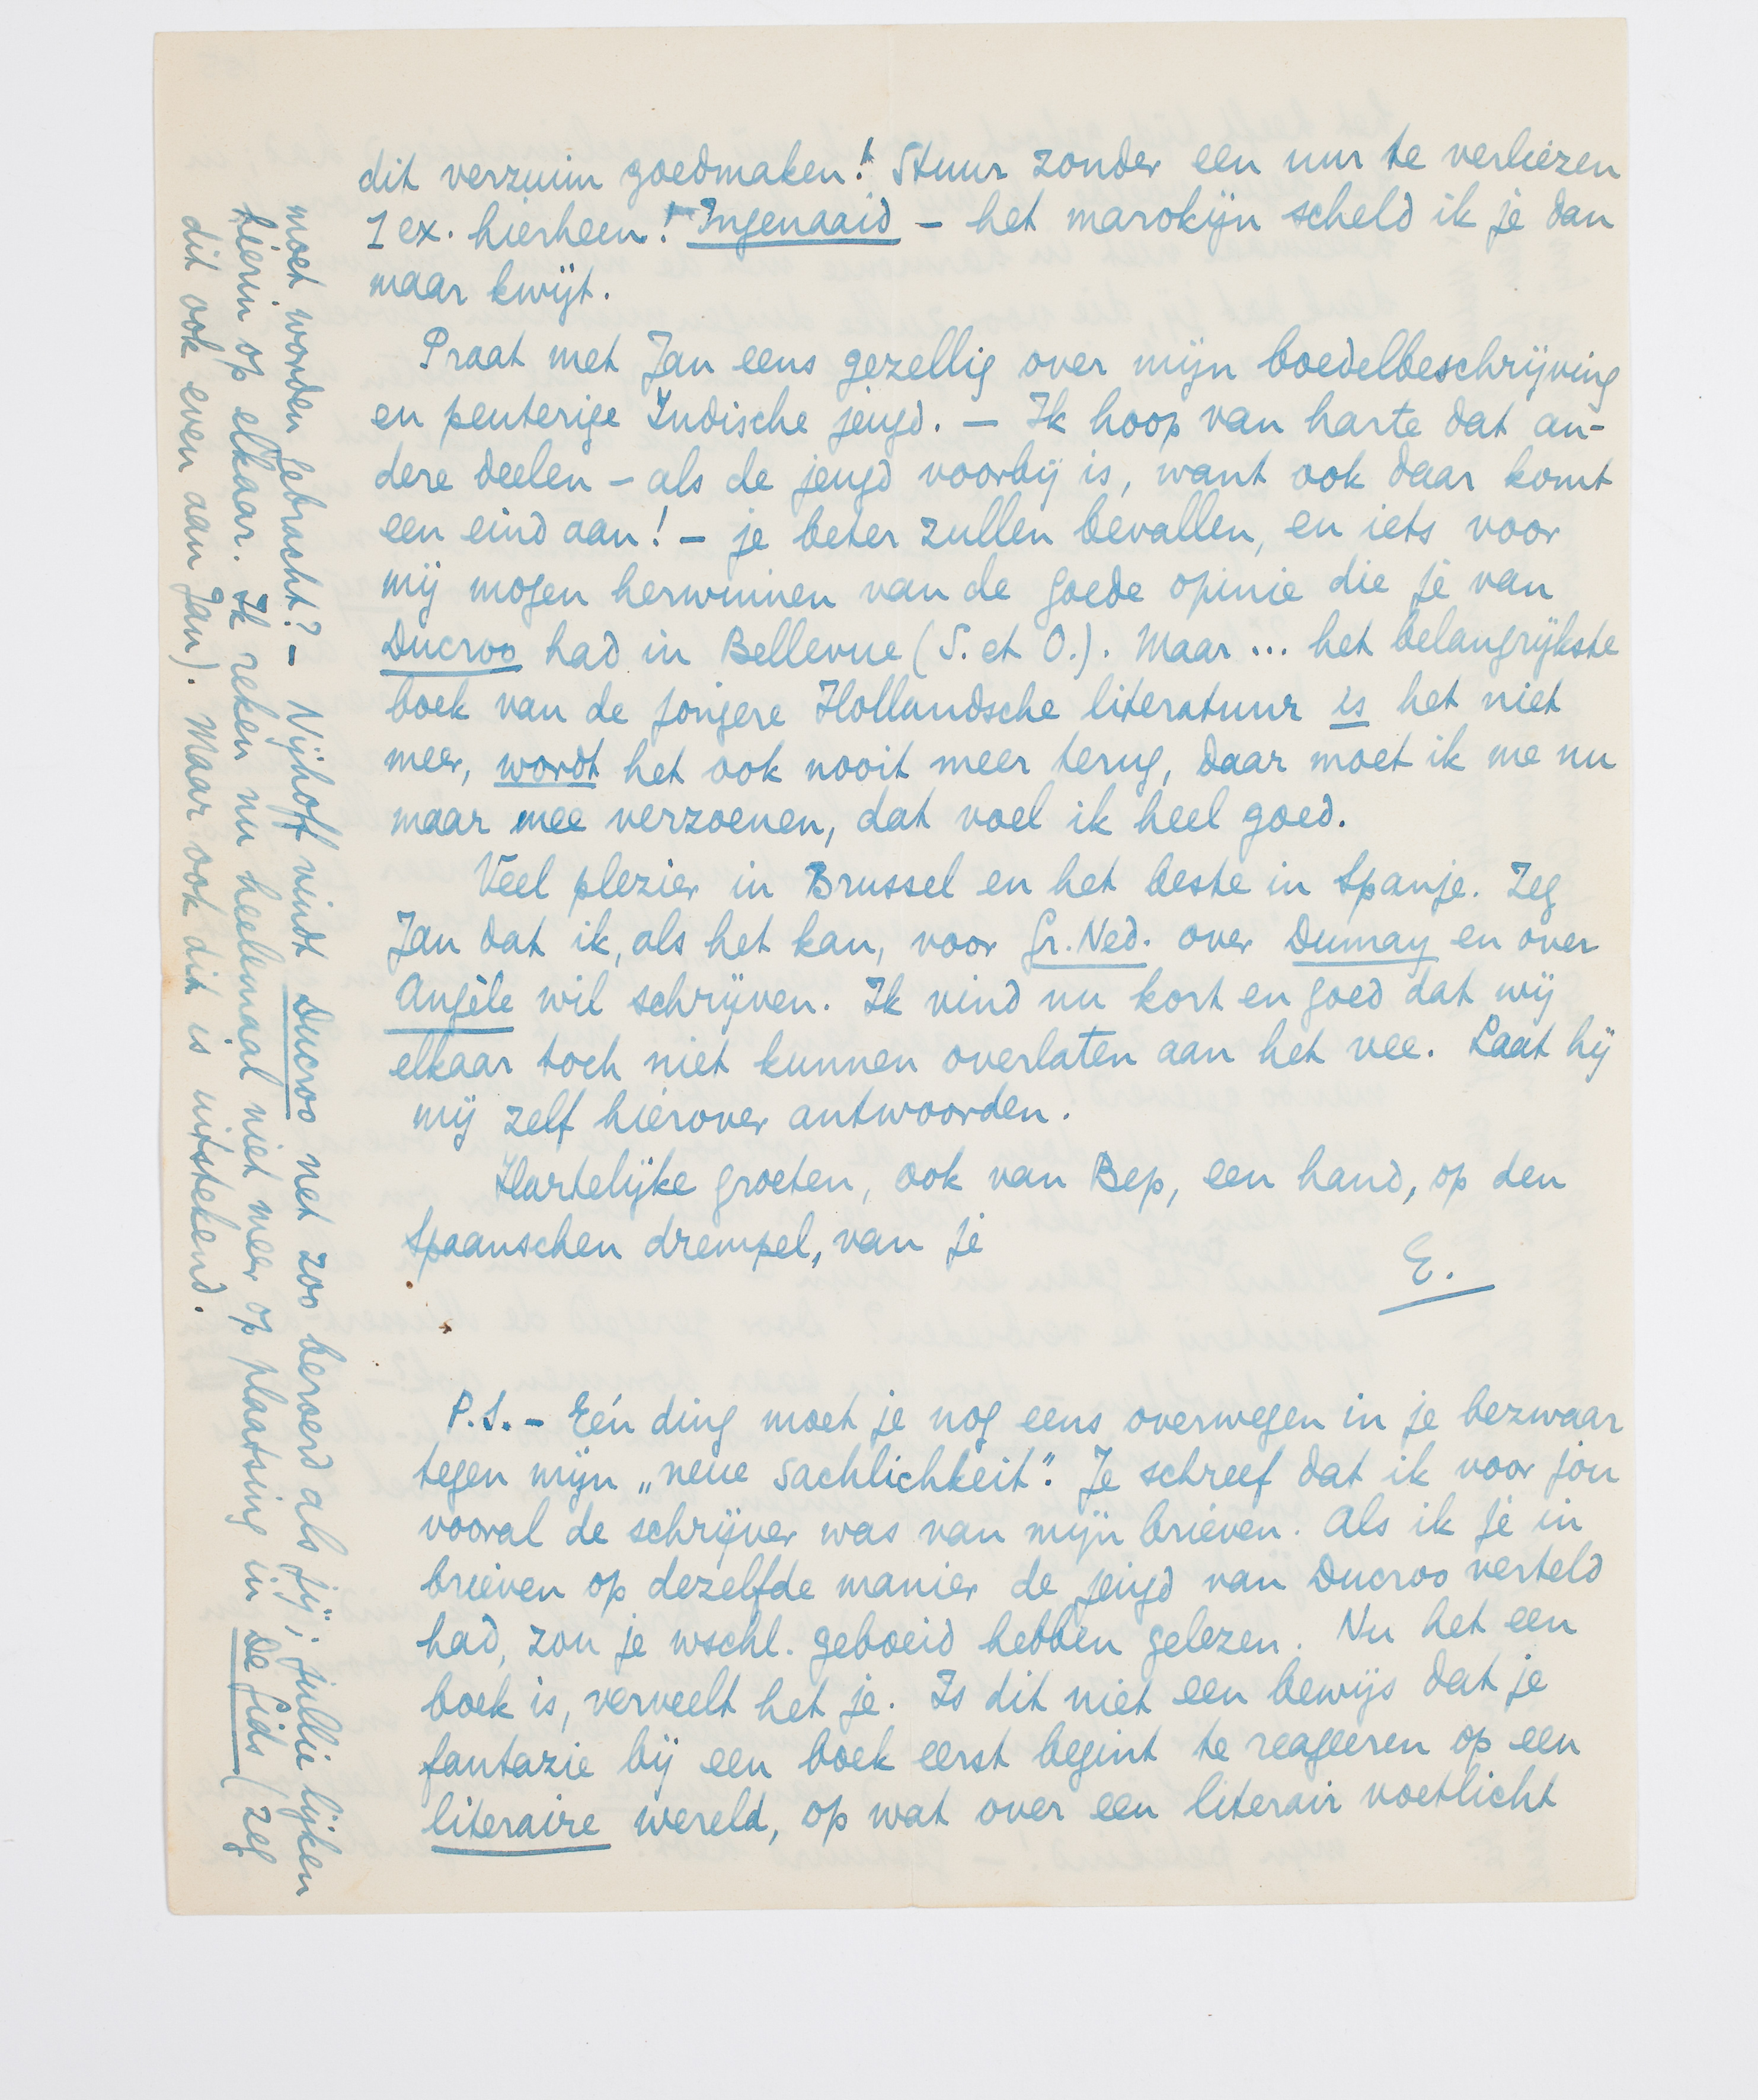 dit verzuim goedmaken! Stuur zonder een uur te verliezen
1 ex. hierheen! Ingenaaid – het marokijn scheld ik je dan
maar kwijt.
Praat met Jan eens gezellig over mijn boedelbeschrijving
en peuterige Indische jeugd. – Ik hoop van harte dat an-
dere deelen – als de jeugd voorbij is, want ook daar komt
een eind aan! – je beter zullen bevallen, en iets voor
mij mogen herwinnen van de goede opinie die je van
Ducroo had in Bellevue (S. et O.). Maar ... het belangrijkste
boek van de jongere Hollandsche literatuur is het niet
meer, wordt het ook nooit meer terug, daar moet ik me nu
maar mee verzoenen, dat voel ik heel goed.
Veel plezier in Brussel en het beste in Spanje. Zeg
Jan dat ik, als het kan, voor Gr. Ned. over Dumay en over
Angèle wil schrijven. Ik vind nu kort en goed dat wij
elkaar toch niet kunnen overlaten aan het vee. Laat hij
mij zelf hierover antwoorden.
Hartelijke groeten, ook van Bep, een hand, op den
Spaanschen drempel, van je
E.
P.S. – Eén ding moet je nog eens overwegen in je bezwaar
tegen mijn „neue Sachlichkeit”. Je schreef dat ik voor jou
vooral de schrijver was van mijn brieven. Als ik je in
brieven op dezelfde manier de jeugd van Ducroo verteld
had, zou je wschl. geboeid hebben gelezen. Nu het een
boek is, verveelt het je. Is dit niet een bewijs dat je
fantazie bij een boek eerst begint te reageeren op een
literaire wereld, op wat over een literair voetlicht
moet worden gebracht? – Nijhoff vindt Ducroo net zoo beroerd als jij; jullie lijken
hierin op elkaar. Ik reken nu heelemaal niet meer op plaatsing in de Gids (zeg
dit ook even aan Jan). Maar ook dit is uitstekend.